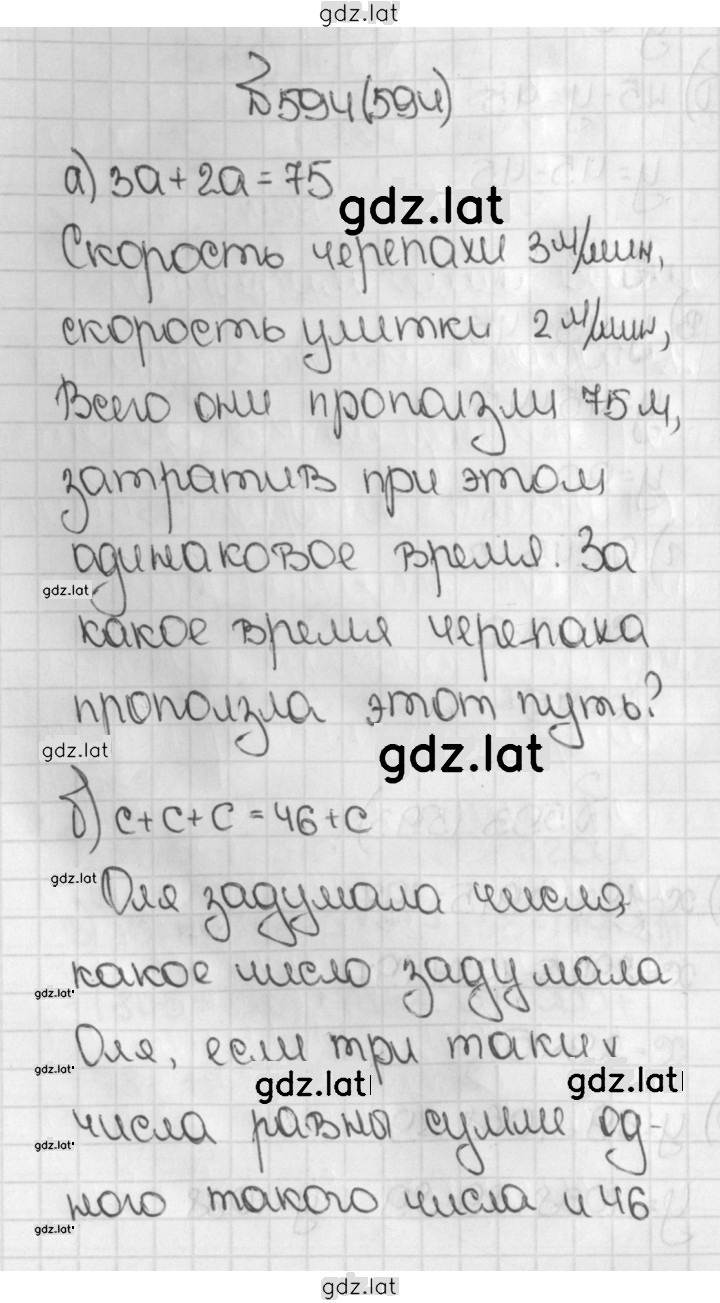 gdz.lat
№594(594)
а) 3а+2а=75
gdz.lat
Скорость черепахи 3м/мин,
скорость улитки 2м/мин,
Всего они проползли 75м,
затратив при этом
одинаковое время. За
gdz.lat
какое время черепаха
проползла этот путь?
gdz.lat
gdz.lat
б) с+с+с=46+с
gdz.lat
Оля задумала числа,
какое число задумала
gdz.lat
Оля, если три таких
gdz.lat
gdz.lat
gdz.lat
числа равны сумме од-
gdz.lat
ного такого числа и 46
gdz.lat
gdz.lat